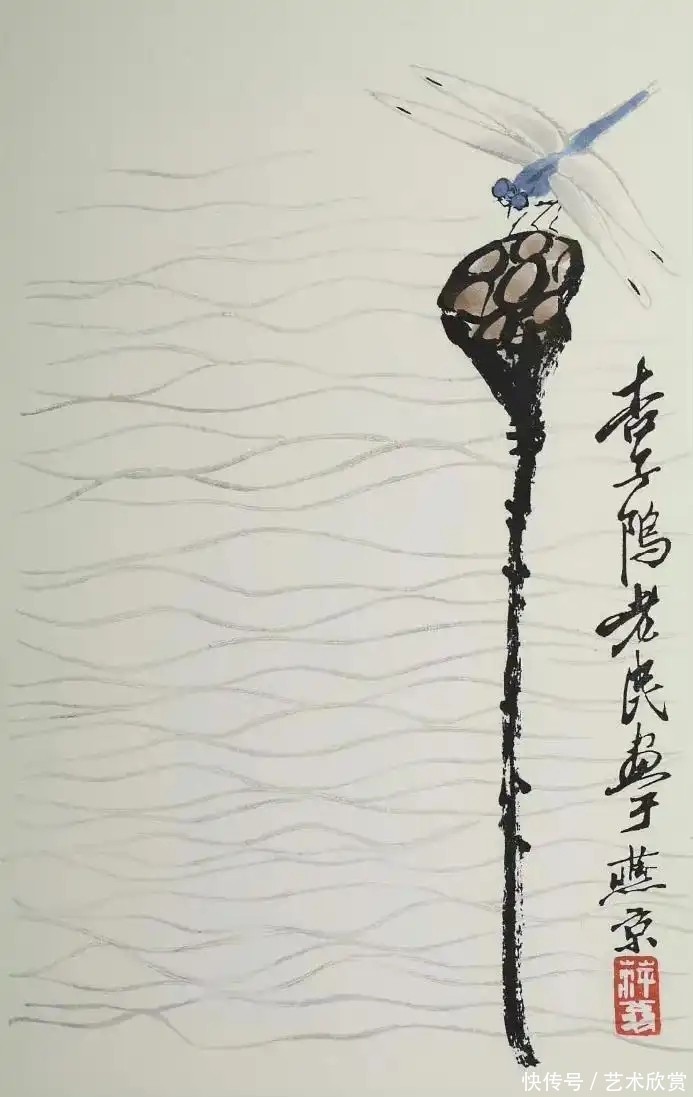 杏子隖老民画于燕京
快传号/艺术欣赏